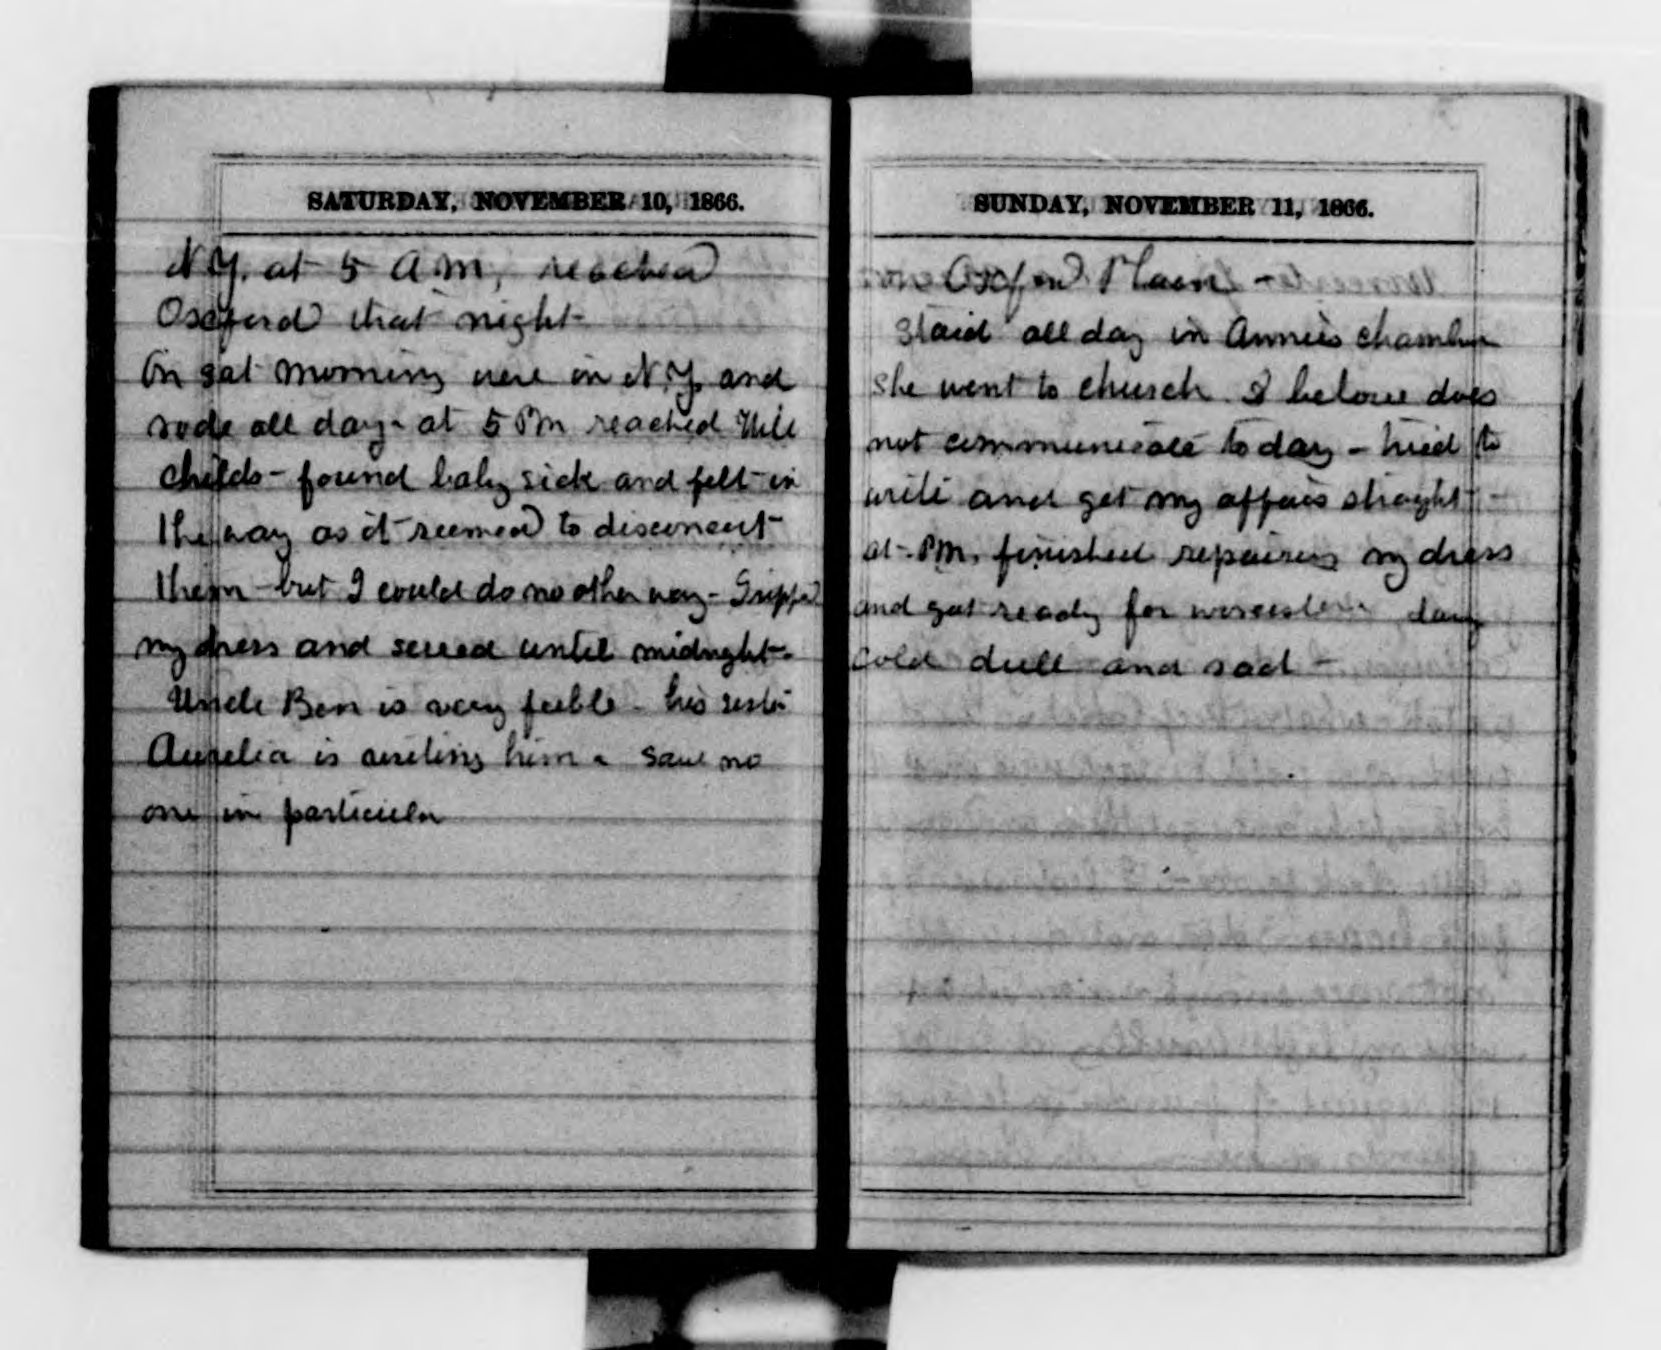 SATURDAY, NOVEMBER 10, 1866.
N.Y. at 5 A.M, reached
Oxford that night
On Sat morning were in N.Y. and
rode all day - at 5 PM reached Will
Childs - found baby sick and felt in
the way as it seemed to disconcert
them - but I could do no other way -
my dress and sewed until midnight -
Uncle Ben is very feeble - his sister
Aurelia is visiting him - saw no
one in particular
SUNDAY, NOVEMBER 11, 1866.
Oxford Plain -
Staid all day in Annies chamber
she went to church. I believe does
not communicate today - tried to
write and get my affairs straight -
at PM. finished repairing my dress
and got ready for Worcester day
cold dull and sad -